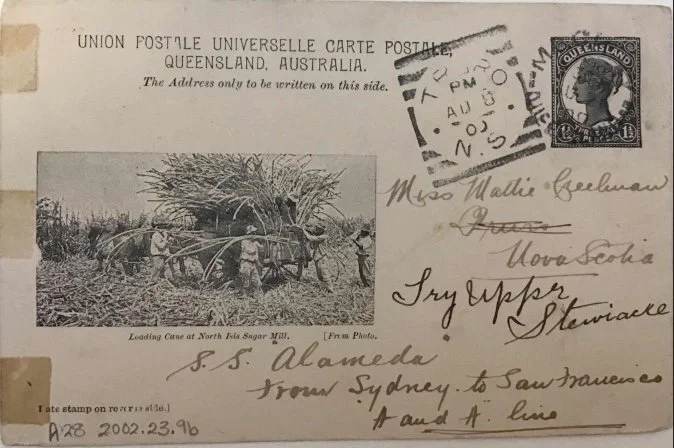 UNION POSTALE UNIVERSELLE CARTE POSTALE,
QUEENSLAND, AUSTRALIA.
The Address only to be written on this side.
PM
AU 8
N.S
QUEENSLAND
1½ 1½
Miss Mattie Creelman
Nova Scotia
Try Upper
Stewiacke
Loading Cane at North Isis Sugar Mill. [From Photo.
S.S. Alameda
From Sydney to San Francisco
A and A line
ate stamp on reverse side.]
A28 2002.23.9b